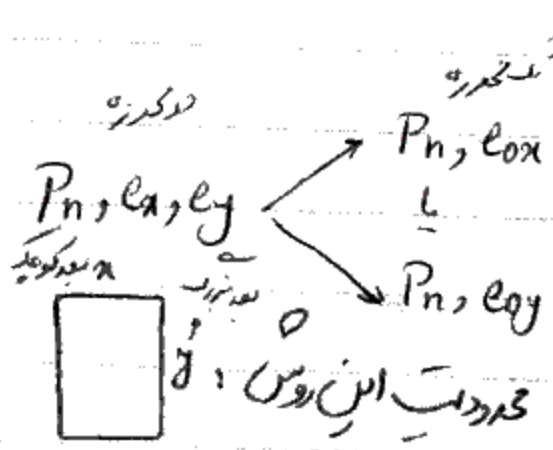 یک محوره
دو محوره
Pn, eox
Pn, ex, ey
یا
Pn, eoy
x بعد کوچک
y بعد بزرگ
محدودیت این روش :